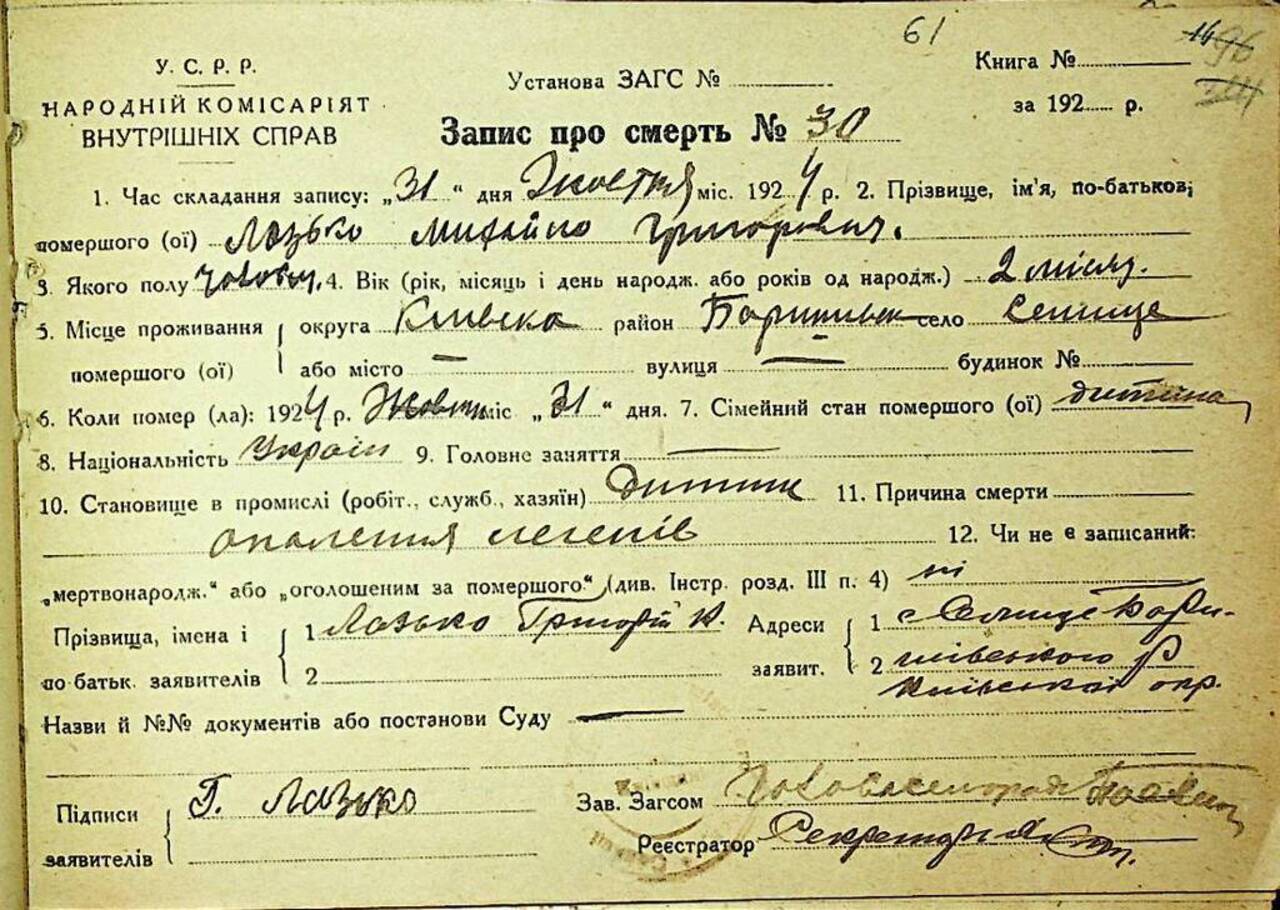 61
У. С. Р. Р.
НАРОДНІЙ КОМІСАРІЯТ
ВНУТРІШНІХ СПРАВ
Установа ЗАГС №
Книга №
за 192 р.
96
Запис про смерть № 30
1. Час складання запису: „31“ дня Жовтня міс. 1924 р. 2. Прізвище, ім'я, по-батькові
помершого (ої) Лазько Михайло Григорович.
3. Якого полу чоловіч. 4. Вік (рік, місяць і день народж. або років од народж.) 2 місяц.
5. Місце проживання помершого (ої) округа Київска район Баришівск село Селище
або місто — вулиця — будинок №
6. Коли помер (ла): 1924 р. Жовтня міс „31“ дня. 7. Сімейний стан помершого (ої) дитина
8. Національність Україн 9. Головне заняття —
10. Становище в промислі (робіт., служб., хазяїн) дитина 11. Причина смерти
опалення легенів 12. Чи не є записаний:
„мертвонародж.“ або „оголошеним за помершого“ (див. Інстр. розд. III п. 4) ні
Прізвища, імена і по батьк. заявителів 1 Лазько Григорій К. Адреси заявит. 1 с Селище Бари-
2 2 шівського р
Київської окр.
Назви й №№ документів або постанови Суду —
Підписи заявителів Г. Лазько Зав. Загсом Голова сельради
Реєстратор Секретар